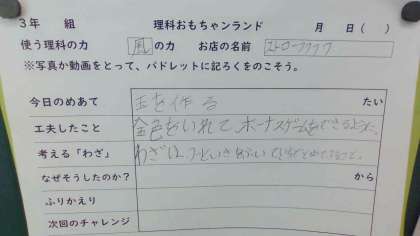 3年 組 理科おもちゃランド 月 日( )
使う理科の力 風の力 お店の名前 ストローフライク
※写真か動画をとって、パドレットに記ろくをのこそう。
今日のめあて 玉を作る たい
工夫したこと 金色をいれて、ボーナスゲームをできるように。
考える「わざ」 わざは、
なぜそうしたのか? から
ふりかえり
次回のチャレンジ